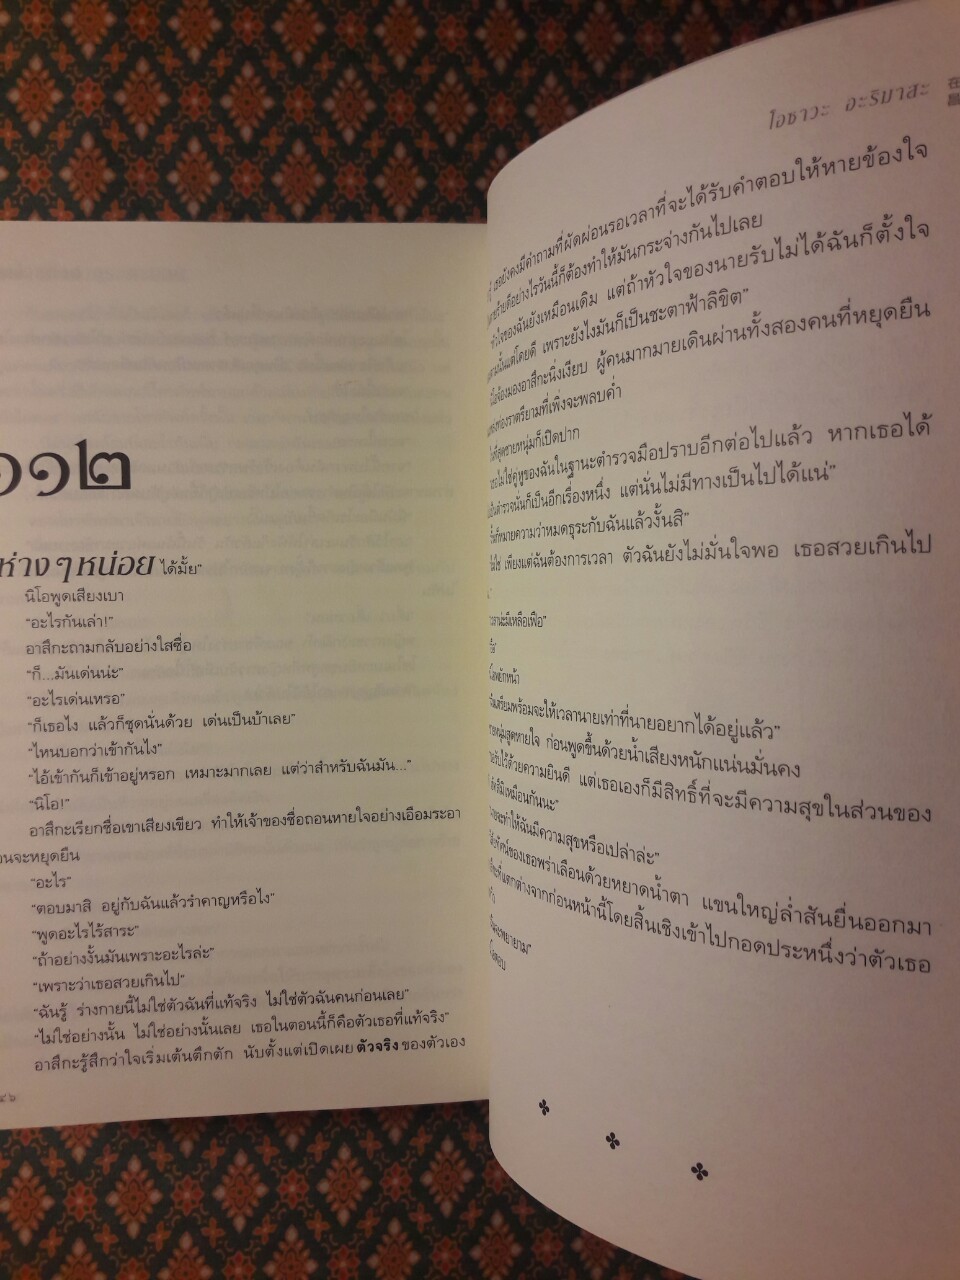 ๑๑๒
ห่าง ๆ หน่อย ได้มั้ย”
นิโอพูดเสียงเบา
“อะไรกันเล่า!”
อาสึกะถามกลับอย่างใสซื่อ
“ก็...มันเด่นน่ะ”
“อะไรเด่นเหรอ”
“ก็เธอไง แล้วก็ชุดนั่นด้วย เด่นเป็นบ้าเลย”
“ไหนบอกว่าเข้ากันไง”
“ไอ้เข้ากันก็เข้าอยู่หรอก เหมาะมากเลย แต่ว่าสำหรับฉันมัน...”
“นิโอ!”
อาสึกะเรียกชื่อเขาเสียงเขียว ทำให้เจ้าของชื่อถอนหายใจอย่างเอือมระอา
อนจะหยุดยืน
“อะไร”
“ตอบมาสิ อยู่กับฉันแล้วรำคาญหรือไง”
“พูดอะไรไร้สาระ”
“ถ้าอย่างงั้นมันเพราะอะไรล่ะ”
“เพราะว่าเธอสวยเกินไป”
“ฉันรู้ ร่างกายนี้ไม่ใช่ตัวฉันที่แท้จริง ไม่ใช่ตัวฉันคนก่อนเลย”
“ไม่ใช่อย่างนั้น ไม่ใช่อย่างนั้นเลย เธอในตอนนี้ก็คือตัวเธอที่แท้จริง”
อาสึกะรู้สึกว่าใจเริ่มเต้นตึกตัก นับตั้งแต่เปิดเผย ตัวจริง ของตัวเอง
๔๖
โอซาวะ อะริมาสะ
เธอยังคงมีคำถามที่ผัดผ่อนรอเวลาที่จะได้รับคำตอบให้หายข้องใจ
ร้ายดีอย่างไรวันนี้ก็ต้องทำให้มันกระจ่างกันไปเลย
หัวใจของฉันยังเหมือนเดิม แต่ถ้าหัวใจของนายรับไม่ได้ฉันก็ตั้งใจ
นั้นแต่โดยดี เพราะยังไงมันก็เป็นชะตาฟ้าลิขิต”
จ้องมองอาสึกะนิ่งเงียบ ผู้คนมากมายเดินผ่านทั้งสองคนที่หยุดยืน
ราตรียามที่เพิ่งจะพลบค่ำ
ในที่สุดชายหนุ่มก็เปิดปาก
เธอไม่ใช่คู่หูของฉันในฐานะตำรวจมือปราบอีกต่อไปแล้ว หากเธอได้
ตำรวจนั่นก็เป็นอีกเรื่องหนึ่ง แต่นั่นไม่มีทางเป็นไปได้แน่”
หมายความว่าหมดธุระกับฉันแล้วงั้นสิ”
เพียงแต่ฉันต้องการเวลา ตัวฉันยังไม่มั่นใจพอ เธอสวยเกินไป
น่ะมีเหลือเฟือ”
พยักหน้า
เตรียมพร้อมจะให้เวลานายเท่าที่นายอยากได้อยู่แล้ว”
หนุ่มสูดหายใจ ก่อนพูดขึ้นด้วยน้ำเสียงหนักแน่นมั่นคง
รับไว้ด้วยความยินดี แต่เธอเองก็มีสิทธิ์ที่จะมีความสุขในส่วนของ
เหมือนกันนะ”
จะทำให้ฉันมีความสุขหรือเปล่าล่ะ”
ทัศน์ของเธอพร่าเลือนด้วยหยาดน้ำตา แขนใหญ่ล่ำสันยื่นออกมา
ที่แตกต่างจากก่อนหน้านี้โดยสิ้นเชิงเข้าไปกอดประหนึ่งว่าตัวเธอ
จะพยายาม”
ตอบ